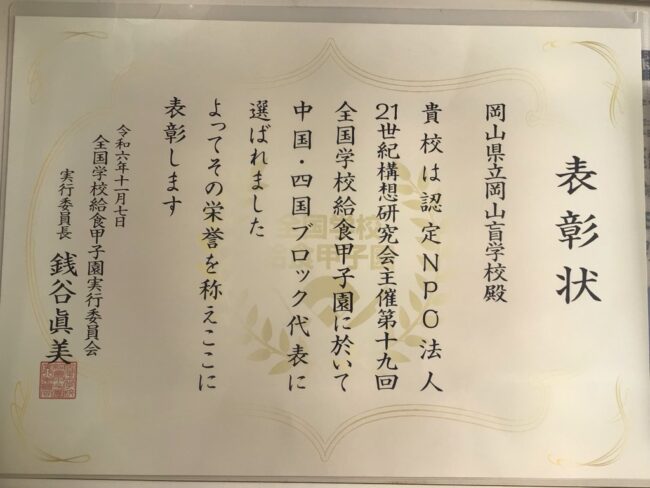 表彰状
岡山県立岡山盲学校殿
貴校は認定NPO法人
21世紀構想研究会主催第十九回
全国学校給食甲子園に於いて
中国・四国ブロック代表に
選ばれました
よってその栄誉を称えここに
表彰します
令和六年十一月七日
全国学校給食甲子園実行委員会
実行委員長 銭谷眞美
全国学校
給食甲子園